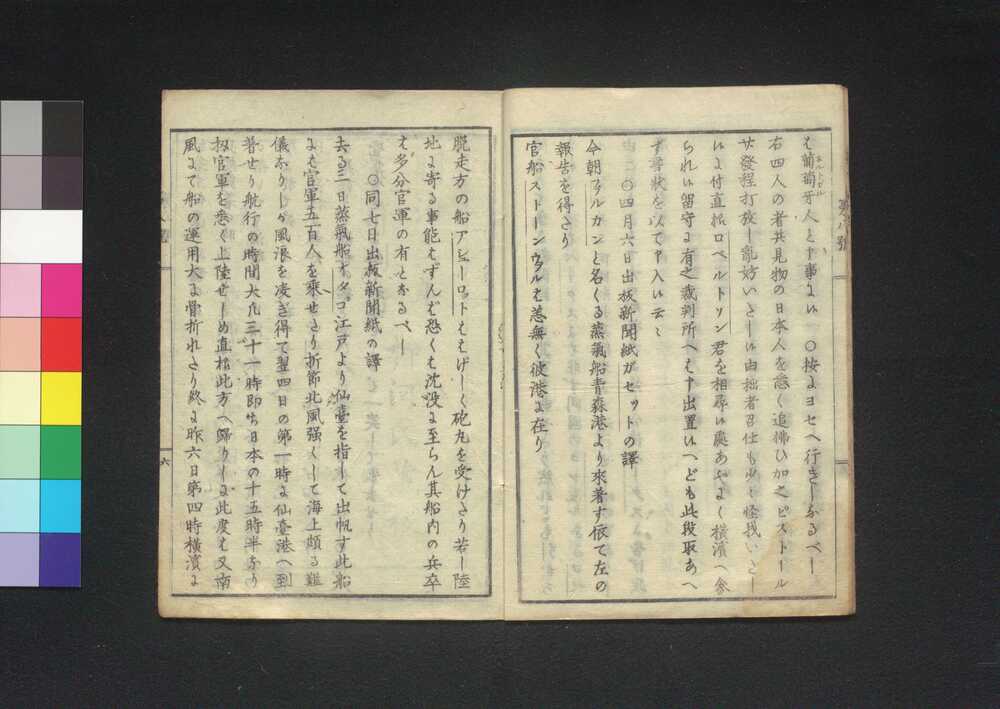 は葡萄牙人と申事なり ○按るにヨセヘ行きしなるべし
右四人の者共見物の日本人を悉く追拂ひ加之ピストール
發程打放し亂妨いたし由拙者召仕も少く怪我いたし
に付直樣ロベルトソン君を相尋候處あやよく横濱へ參
られ候留守に有之裁判所へは申出置候へども此段取あへ
ず書狀を以て申入候云々
○四月六日出板新聞紙ガセットの譯
今朝フルカンと名くる蒸氣船青森港より來着す依て左の
報告を得たり
官船ストーンウヲルは恙無く彼港に在り
脱走方の船アシューロットははげしく砲丸を受けたり若し陸
地に寄る事能はずんば恐くは沈沒に至らん其船內の兵卒
は多分官軍の有となるべし
○同七日出板新聞紙の譯
去る三日蒸氣船オタゴ江戸より仙臺を指して出帆す此船
には官軍五百人を乘せたり折節北風強くして海上頗る難
儀なりしが風浪を凌ぎ得て翌四日の第一時に仙臺港へ到
着せり航行の時間大凡三十一時即ち日本の十五時半なり
扨官軍を悉く上陸せしめ直樣此方へ歸りしに此度は又南
風にて船の運用大に骨折れたり終に昨六日第四時横濱に
六